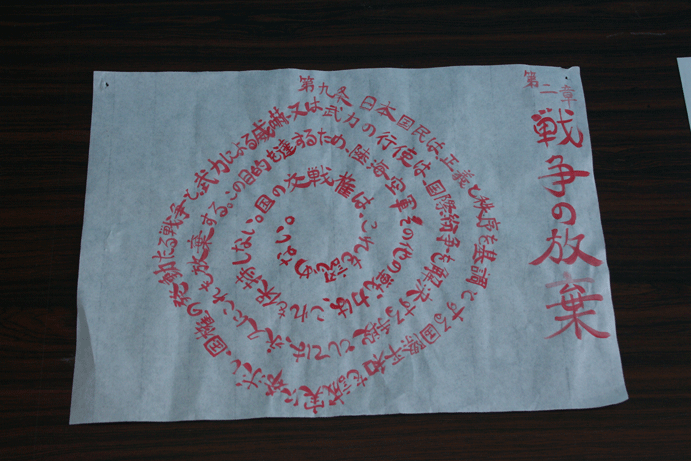 第二章
戦争の放棄
第九条 日本国民は、正義と秩序を基調とする国際平和を誠実に希求し、国権の発動たる戦争と、武力による威嚇又は武力の行使は、国際紛争を解決する手段としては、永久にこれを放棄する。この目的を達するため、陸海空軍その他の戦力は、これを保持しない。国の交戦権は、これを認めない。